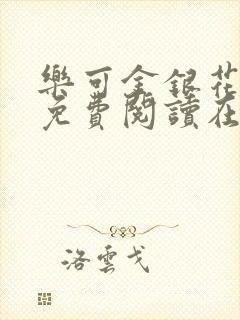 樂可金銀花
免費閱讀在
洛雲戈